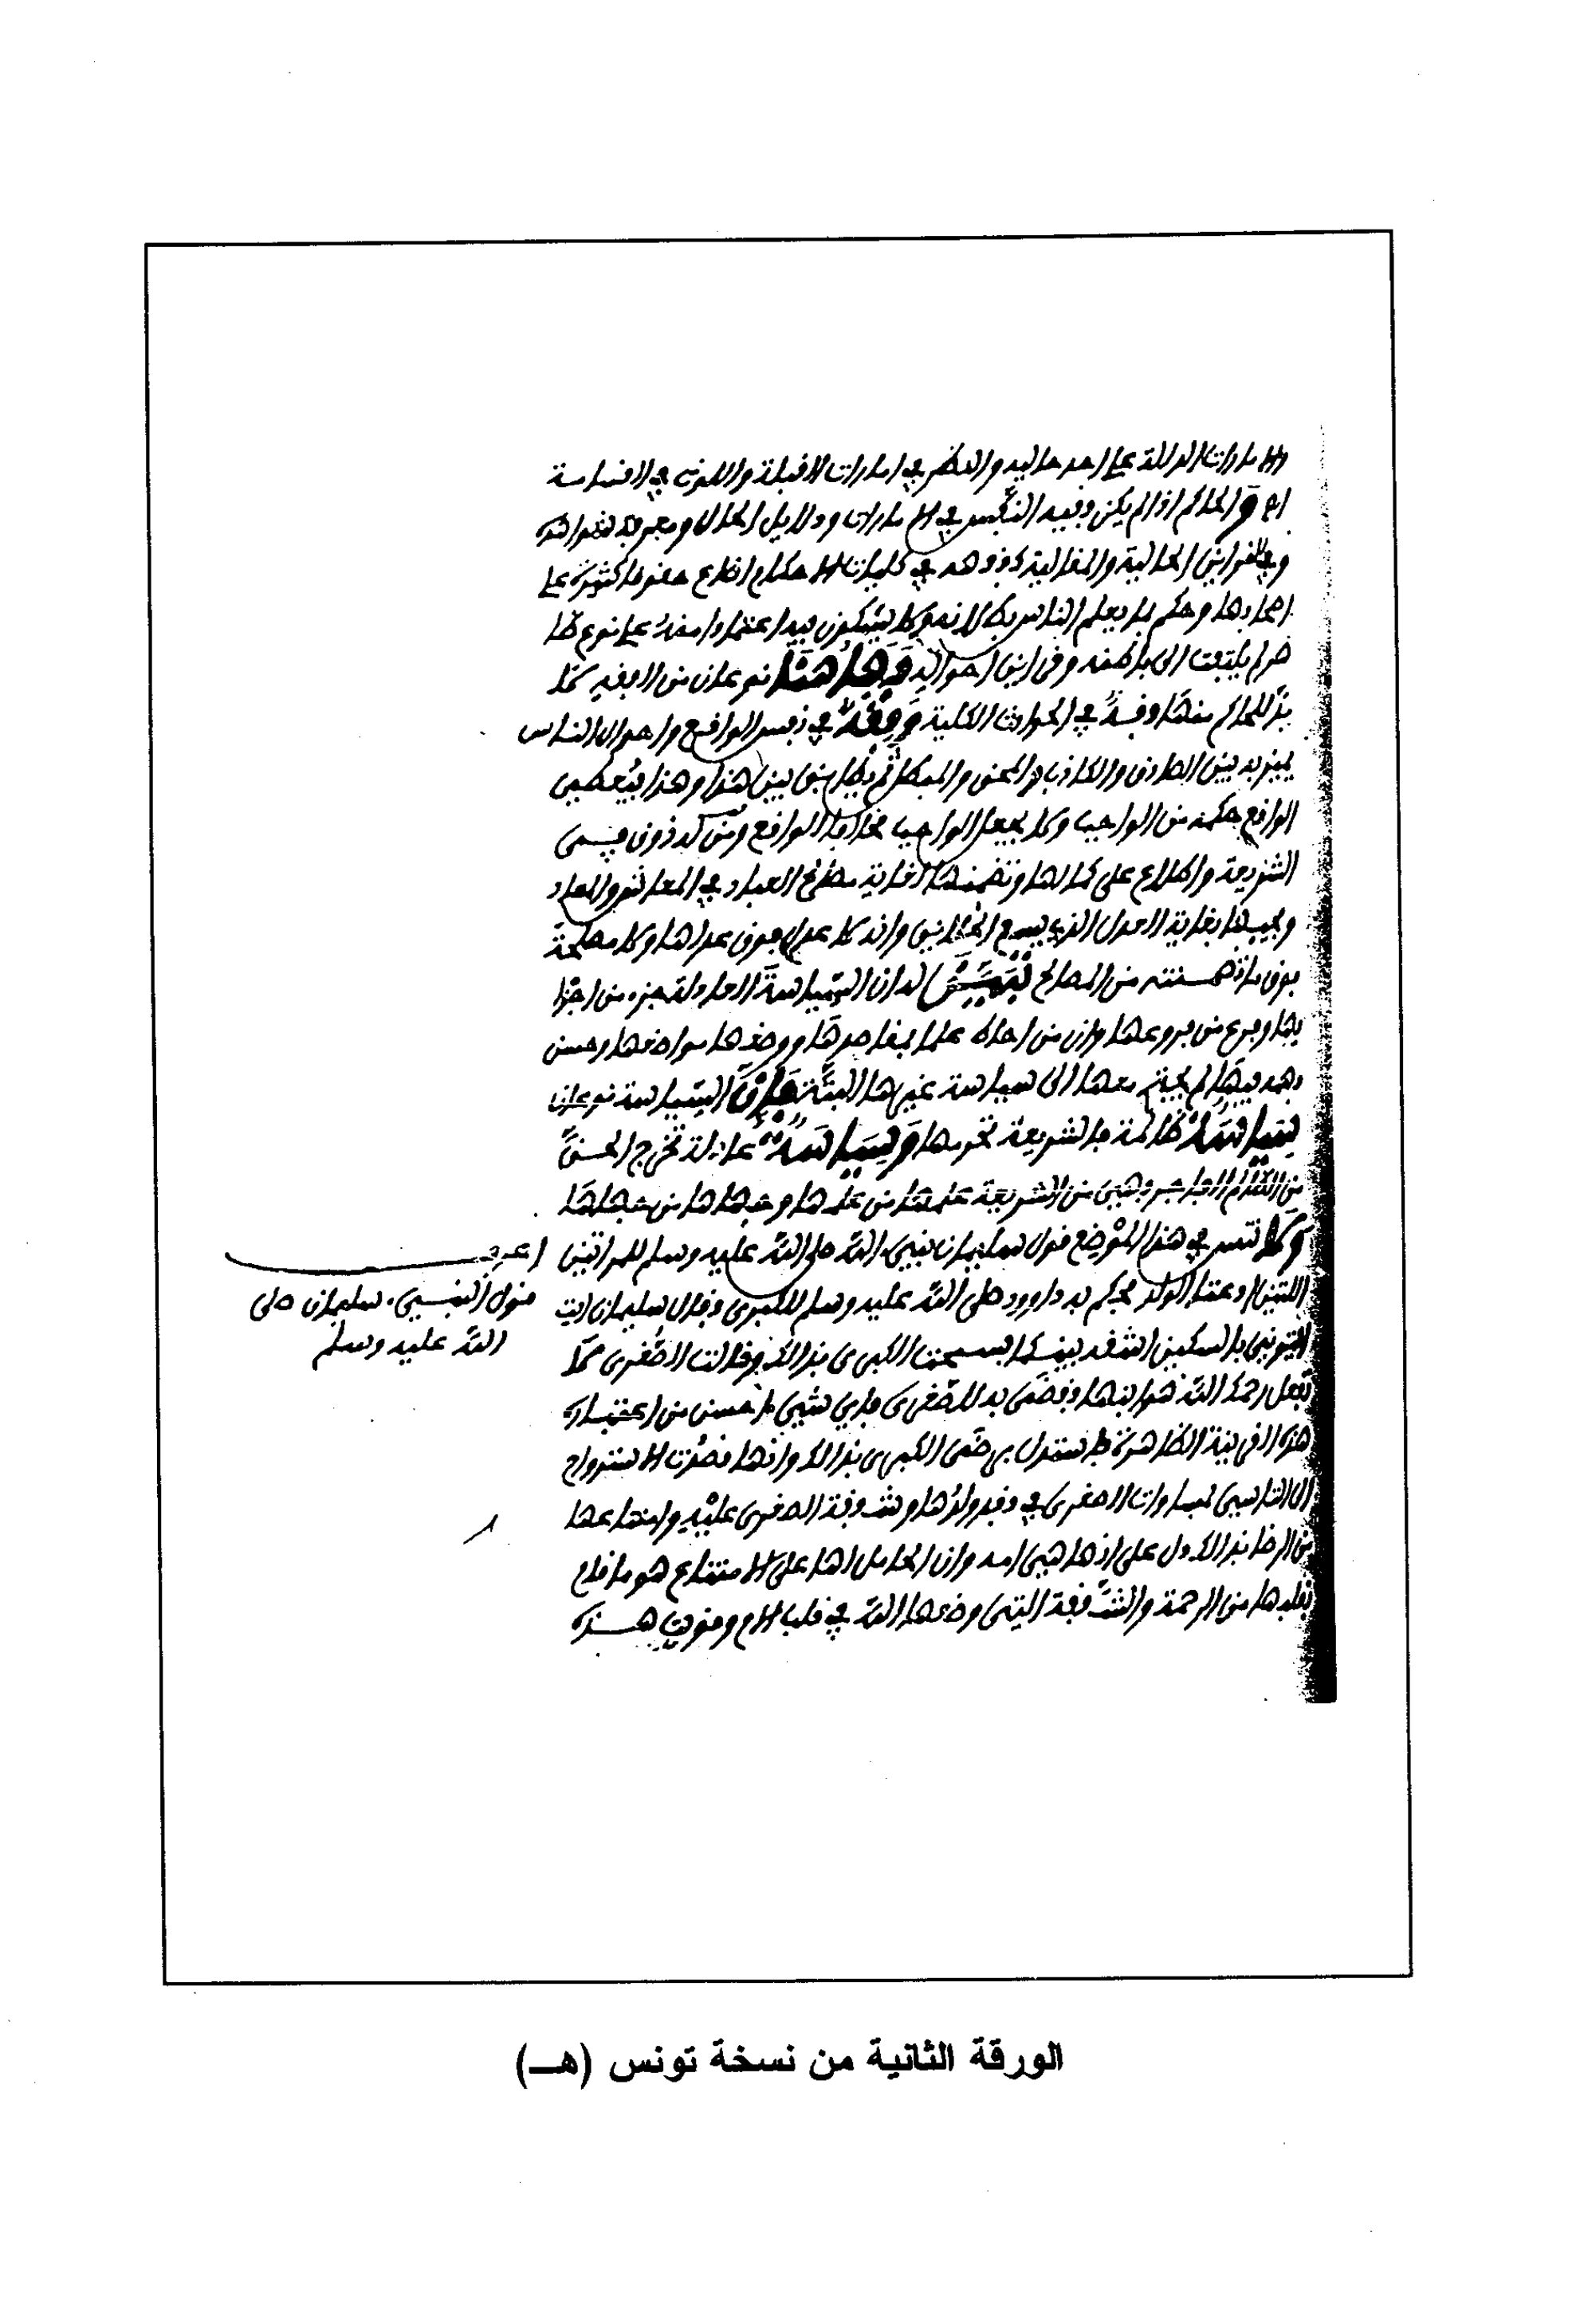 والامارات الدالة على احد حاليه والنظر في امارات القبلة واللوث في القسامة
والحاكم اذا لم يكن فقيه النفس في الامارات ودلايل الحال ومعرفة شواهده
وفي القراين الحالية والمقالية كفقهه في كليات الاحكام اضاع حقوقا كثيرة على
اصحابها وحكم بما يعلم الناس بطلانه ولا يشكون فيه اعتمادا منه على نوع ظا
هر لم يلتفت الى باطنه وقراين احواله فهاهنا نوعان من الفقه لا
بد للحاكم منهما فقه في الحوادث الكلية وفقه في نفس الواقع واحوال الناس
يميز به بين الصادق والكاذب والمحق والمبطل ثم يطابق بين هذا وهذا فيعطي
الواقع حكمه من الواجب ولا يجعل الواجب مخالفا للواقع ومن له ذوق في
الشريعة واطلاع على كمالها وتضمنها لغاية مصالح العباد في المعاش والمعاد
ومجيبها بغاية العدل الذي يسع الخلايق وانه لا عدل فوق عدلها ولا مصلحة
فوق ما تضمنته من المصالح تبين له ان السياسة العادلة جزء من اجزا
يها وفرع من فروعها وان من احاط علما بمقاصدها ووضعها مواضعها وحسن
فهمه فيها لم يحتج معها الى سياسة غيرها البتة فان السياسة نوعان
سياسة ظالمة فالشريعة تحرمها وسياسة عادلة تخرج الحق
من الظالم الفاجر وهي من الشريعة علمها من علمها وجهلها من جهلها
ولا تنس في هذا الموضع قول سليمان نبي الله صلى الله عليه وسلم للمراتين
اللتين ادعتا الولد فحكم به داوود صلى الله عليه وسلم للكبرى فقال سليمان ايت
ايتوني بالسكين اشقه بينكما فسمحت الكبرى بذالك وقالت الصغرى لا
تفعل رحمك الله هو ابنها فقضى به للصغرى فاي شيء احسن من اعتبار
هذه القرينة الظاهرة فاستدل برضى الكبرى بذالك وانها قصدت الاسترواح
الى التاسي بمساوات الصغرى في فقد ولدها وشفقة الصغرى عليه وامتناعها
من الرضا بذالك دل على انها هي امه وان الحامل لها على الامتناع هو ما قام
بقلبها من الرحمة والشفقة التي وضعها الله في قلب الام وقويت هذه
اعرف
قول النبي سليمان صلى
الله عليه وسلم
الورقة الثانية من نسخة تونس (هـ)